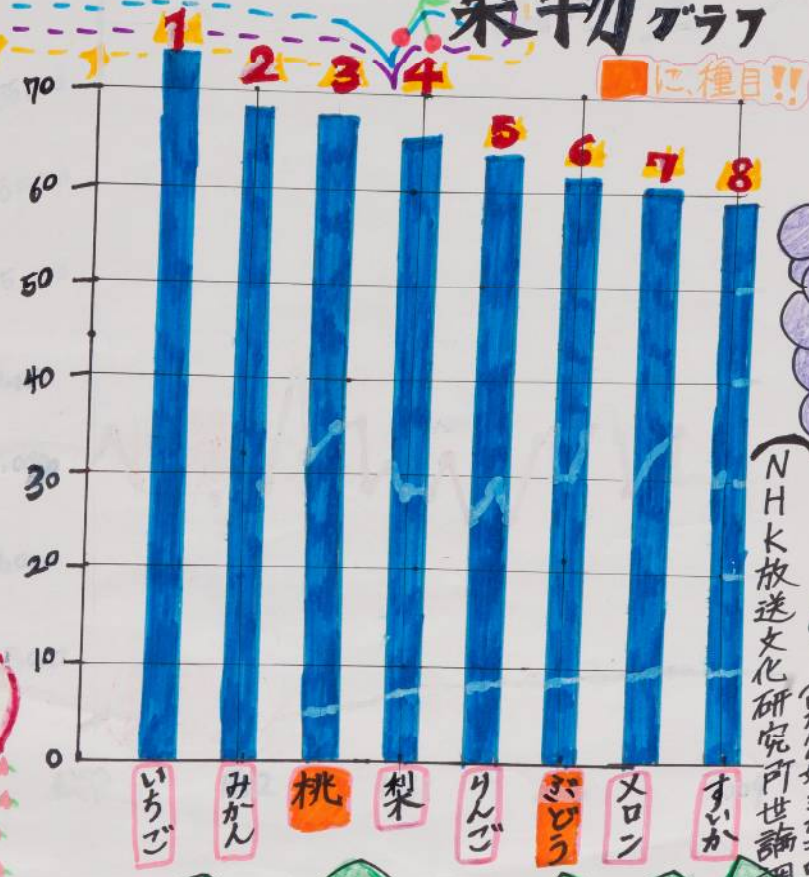 果物グラフ
に、種目!!
1 2 3 4 5 6 7 8
70
60
50
40
30
20
10
0
いちご
みかん
桃
梨
りんご
ぶどう
メロン
すいか
NHK放送文化研究所世論